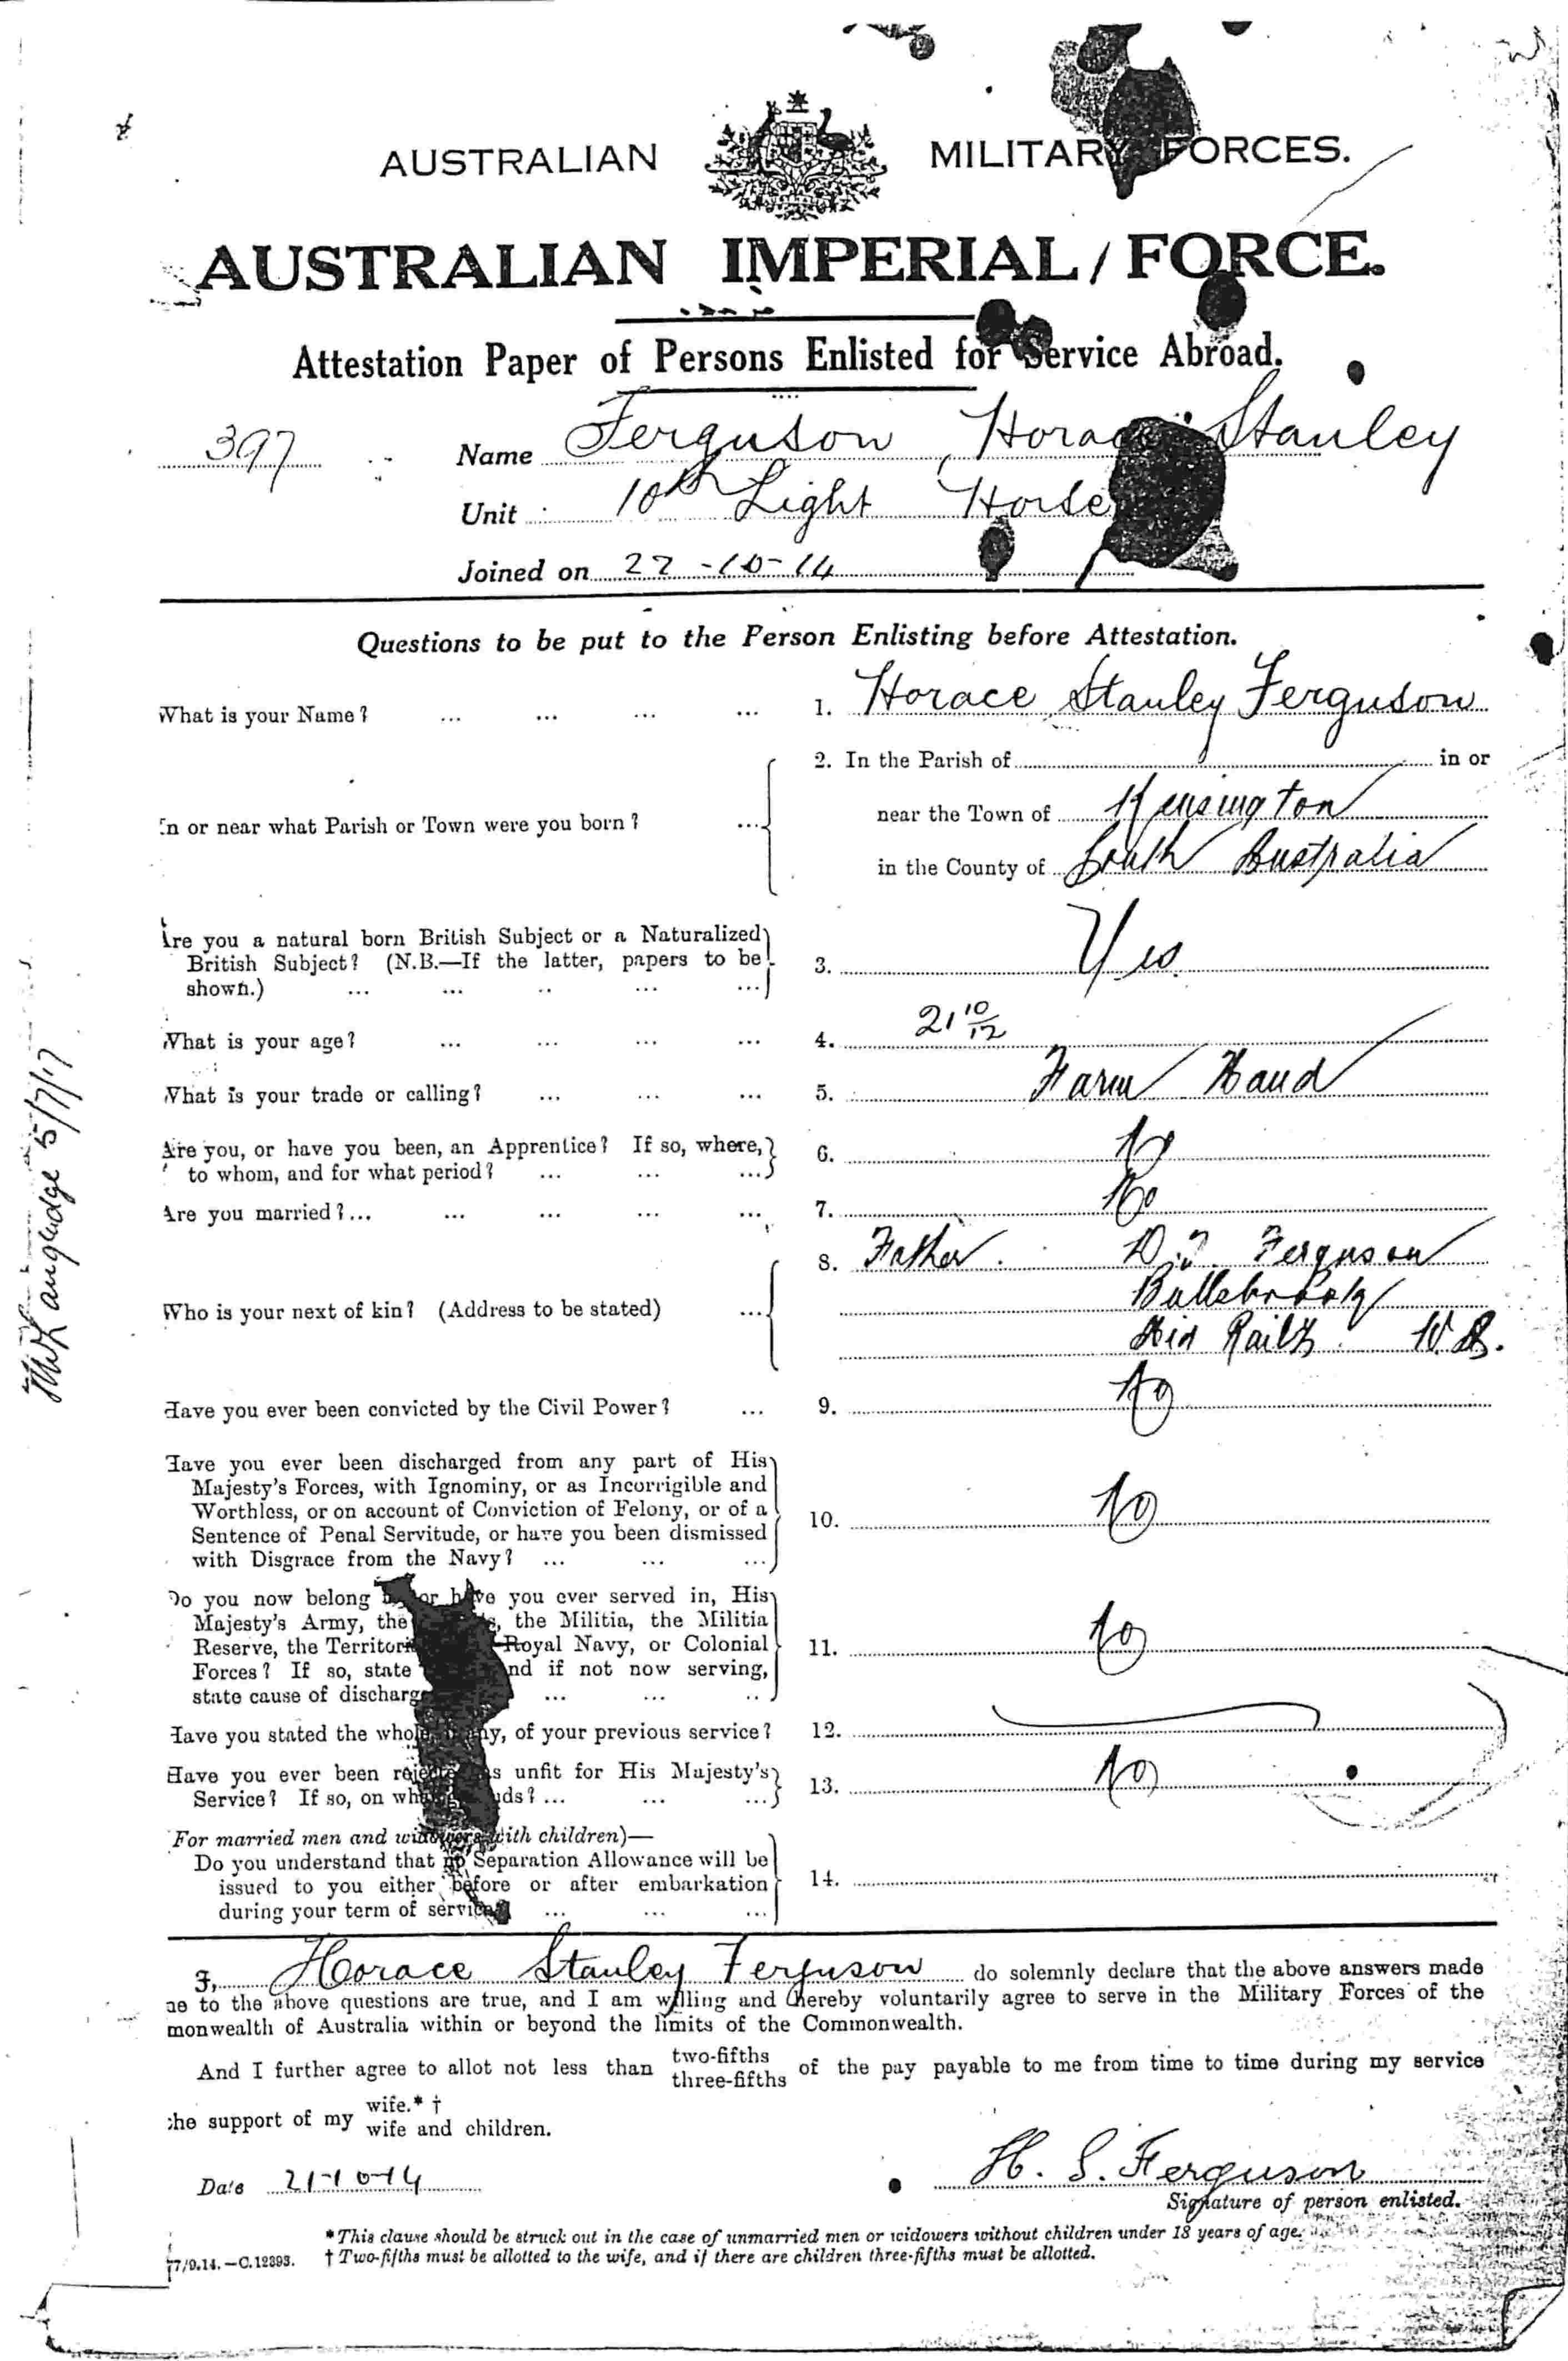 AUSTRALIAN MILITARY FORCES.
AUSTRALIAN IMPERIAL FORCE.
Attestation Paper of Persons Enlisted for Service Abroad.
397 Name Ferguson, Horace Stanley
Unit 10th Light Horse
Joined on 22-10-14
Questions to be put to the Person Enlisting before Attestation.
What is your Name? ... ... ... ... 1. Horace Stanley Ferguson
2. In the Parish of in or
In or near what Parish or Town were you born? ... near the Town of Kensington
in the County of South Australia
Are you a natural born British Subject or a Naturalized
British Subject? (N.B.—If the latter, papers to be 3. Yes
shown.) ... ... .. ... ...
What is your age? ... ... ... ... 4. 21 10/12
What is your trade or calling? ... ... ... 5. Farm Hand
Are you, or have you been, an Apprentice? If so, where, 6. No
to whom, and for what period? ... ... ...
Are you married?... ... ... ... ... 7. No
8. Father. D. T. Ferguson
Who is your next of kin? (Address to be stated) ... Bullsbrook
Mid Railwy W.A.
Have you ever been convicted by the Civil Power? ... 9. No
Have you ever been discharged from any part of His
Majesty's Forces, with Ignominy, or as Incorrigible and
Worthless, or on account of Conviction of Felony, or of a 10. No
Sentence of Penal Servitude, or have you been dismissed
with Disgrace from the Navy? ... ... ...
Do you now belong or have you ever served in, His
Majesty's Army, the the Militia, the Militia
Reserve, the Royal Navy, or Colonial 11. No
Forces? If so, state and if not now serving,
state cause of discharge ... ... ..
Have you stated the whole, if any, of your previous service? 12.
Have you ever been rejected as unfit for His Majesty's 13. No
Service? If so, on what ... ... ...
For married men and widowers with children)—
Do you understand that no Separation Allowance will be
issued to you either before or after embarkation 14.
during your term of service ... ... ...
I, Horace Stanley Ferguson do solemnly declare that the above answers made
to the above questions are true, and I am willing and hereby voluntarily agree to serve in the Military Forces of the
monwealth of Australia within or beyond the limits of the Commonwealth.
And I further agree to allot not less than two-fifths three-fifths of the pay payable to me from time to time during my service
the support of my wife.* † wife and children.
Date 21-10-14 H. S. Ferguson
Signature of person enlisted.
*This clause should be struck out in the case of unmarried men or widowers without children under 18 years of age.
7/9.14.—C.12393. † Two-fifths must be allotted to the wife, and if there are children three-fifths must be allotted.
5/7/17